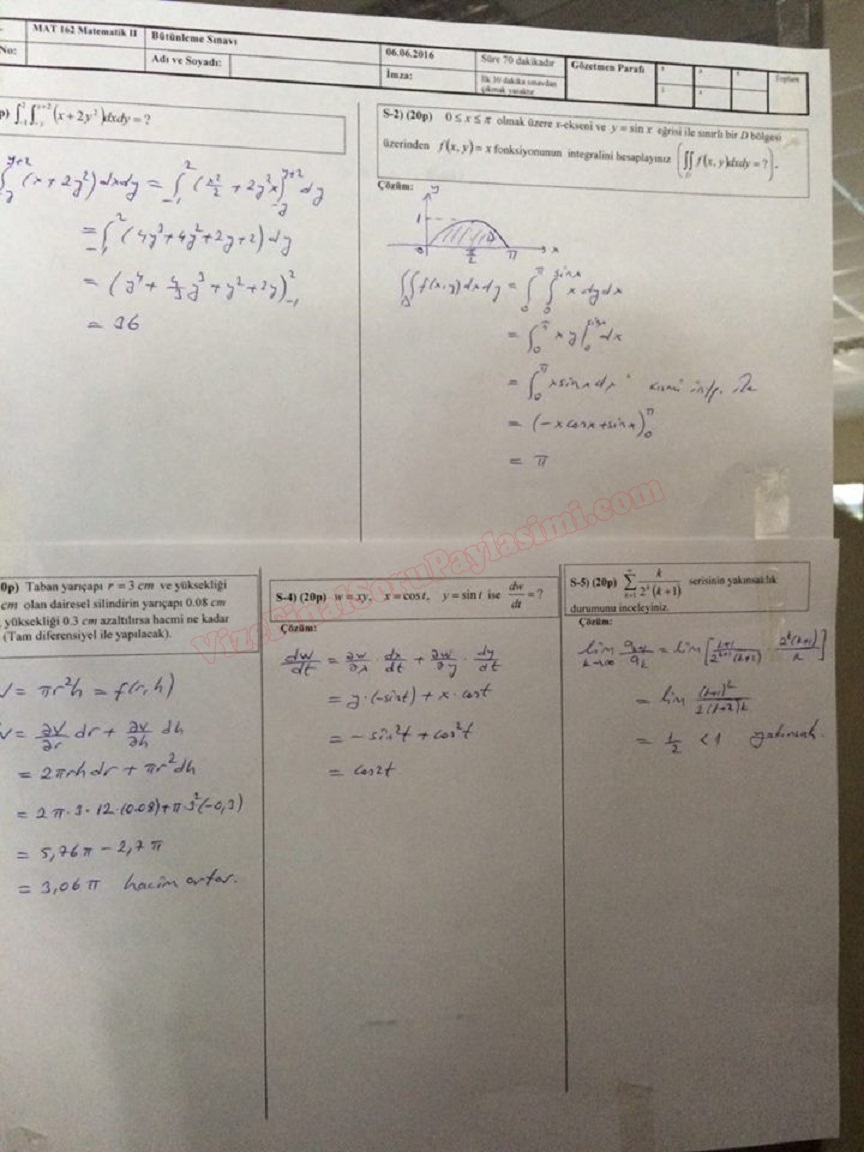 MAT 162 Matematik II
Bütünleme Sınavı
06.06.2016
Süre 70 dakikadır
Gözetmen Parafı
Toplam
No:
Adı ve Soyadı:
İmza:
İlk 30 dakika sınavdan
çıkmak yasaktır
p) ∫₋₁² ∫₋y^(y+2) (x + 2y²)dxdy = ?
∫₋y^(y+2) (x+2y²)dxdy = ∫₋₁² (x²/2 + 2y²x)₋y^(y+2) dy
= ∫₋₁² (4y³+4y²+2y+2)dy
= (y⁴ + 4/3 y³ + y² + 2y)₋₁²
= 36
S-2) (20p) 0 ≤ x ≤ π olmak üzere x-ekseni ve y = sin x eğrisi ile sınırlı bir D bölgesi
üzerinden f(x, y) = x fonksiyonunun integralini hesaplayınız (∬_D f(x, y)dxdy = ?).
Çözüm:
y
1
D
0 π/2 π x
∬_D f(x,y)dxdy = ∫₀^π ∫₀^sinx x dydx
= ∫₀^π xy|₀^sinx dx
= ∫₀^π xsinxdx kısmi int. ile
= (-xcosx+sinx)₀^π
= π
VizeFinalSoruPaylasimi.com
0p) Taban yarıçapı r = 3 cm ve yüksekliği
cm olan dairesel silindirin yarıçapı 0.08 cm
, yüksekliği 0.3 cm azaltılırsa hacmi ne kadar
(Tam diferensiyel ile yapılacak).
V = πr²h = f(r,h)
V = ∂V/∂r dr + ∂V/∂h dh
= 2πrhdr + πr²dh
= 2π·3·12·(0.08)+π·3²(-0,3)
= 5,76π - 2,7π
= 3,06π hacim artar.
S-4) (20p) w = xy, x = cos t, y = sin t ise dw/dt = ?
Çözüm:
dw/dt = ∂w/∂x · dx/dt + ∂w/∂y · dy/dt
= y·(-sint) + x·cost
= -sin²t + cos²t
= cos2t
S-5) (20p) ∑_(k=1)^∞ k/(2^k (k+1)) serisinin yakınsaklık
durumunu inceleyiniz.
Çözüm:
lim_(k→∞) a_(k+1)/a_k = lim [(k+1)/(2^(k+1)(k+2)) · 2^k(k+1)/k]
= lim (k+1)²/(2(k+2)k)
= 1/2 < 1 yakınsak.